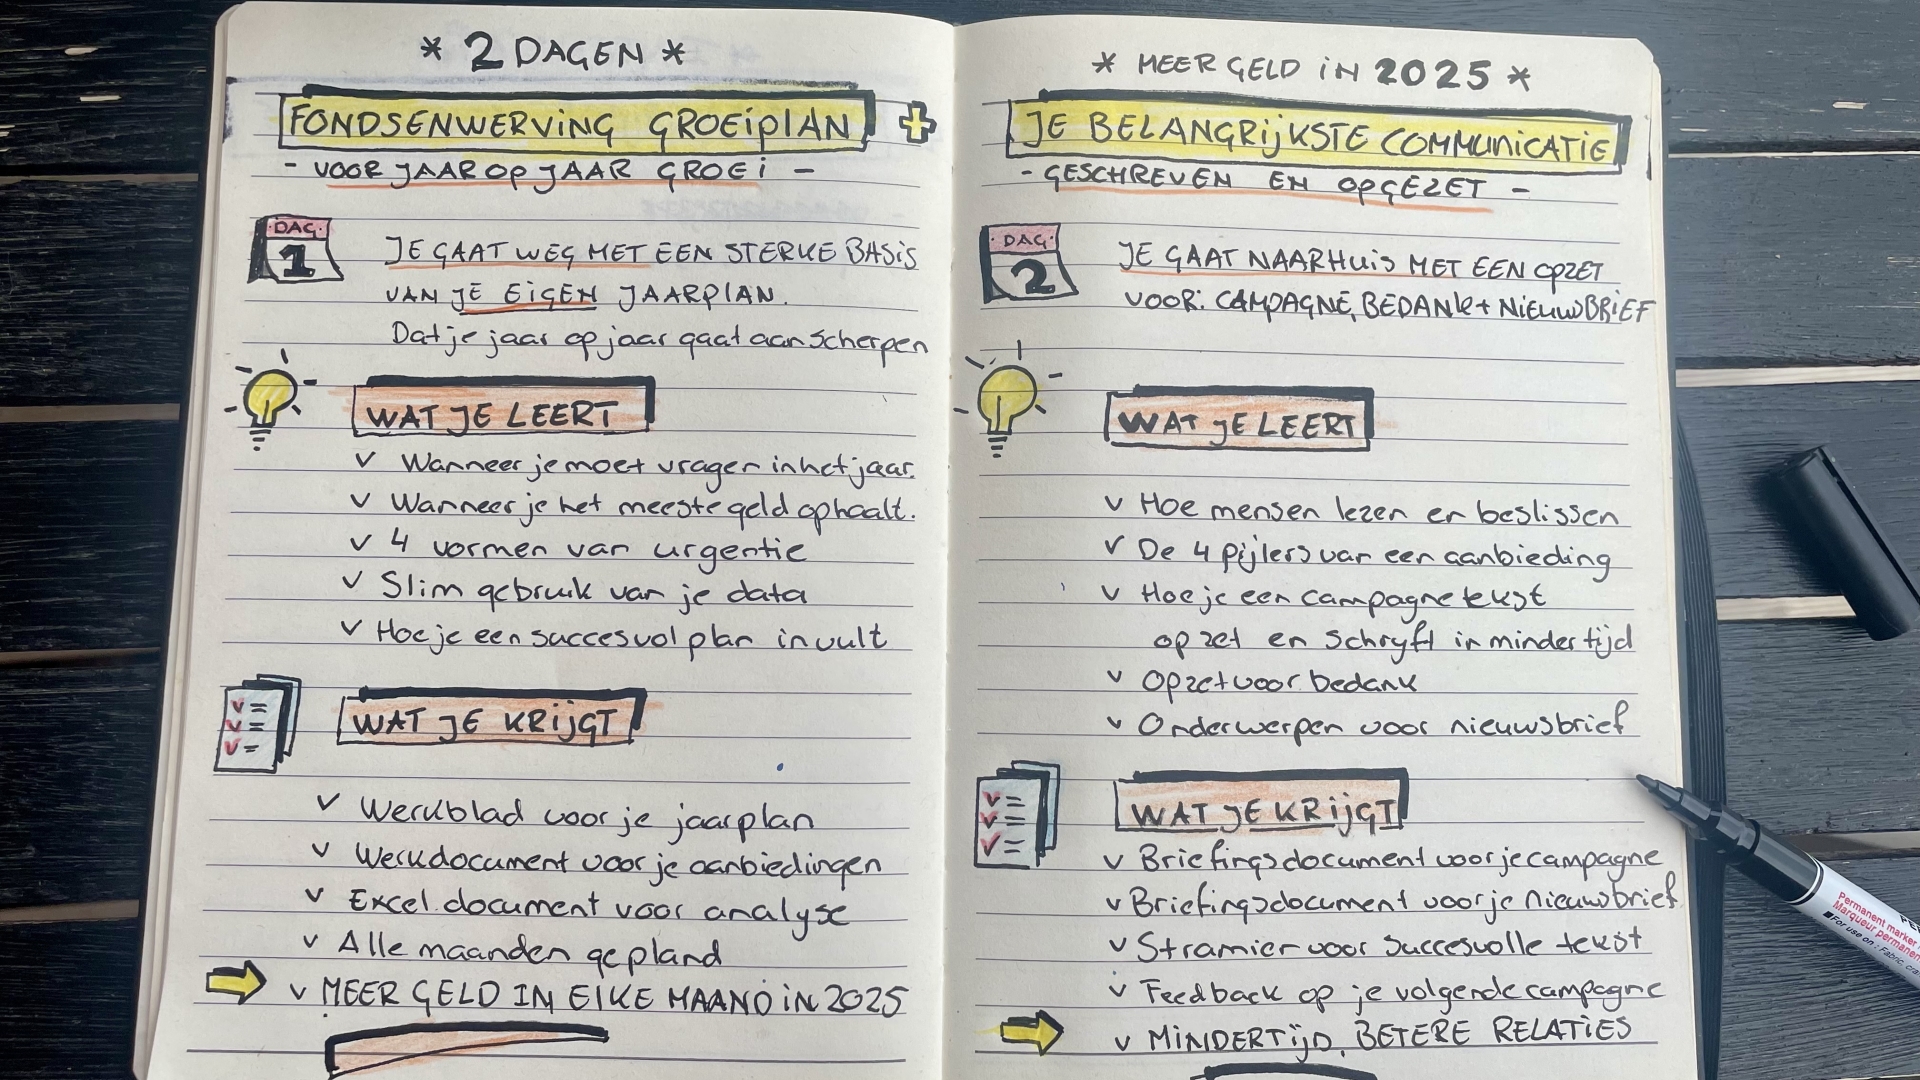 * 2 DAGEN *
FONDSENWERVING GROEIPLAN +
- VOOR JAAR OP JAAR GROEI -
DAG
1
JE GAAT WEG MET EEN STERKE BASIS
VAN JE EIGEN JAARPLAN.
Dat je jaar op jaar gaat aanscherpen
WAT JE LEERT
v Wanneer je moet vragen in het jaar.
v Wanneer je het meeste geld ophaalt.
v 4 vormen van urgentie
v Slim gebruik van je data
v Hoe je een succesvol plan invult
WAT JE KRIJGT
v Werkblad voor je jaarplan
v Werkdocument voor je aanbiedingen
v Excel document voor analyse
v Alle maanden gepland
v MEER GELD IN ELKE MAAND IN 2025
* MEER GELD IN 2025 *
JE BELANGRIJKSTE COMMUNICATIE
- GESCHREVEN EN OPGEZET -
DAG
2
JE GAAT NAARHUIS MET EEN OPZET
VOOR: CAMPAGNE, BEDANK + NIEUWSBRIEF
WAT JE LEERT
v Hoe mensen lezen en beslissen
v De 4 pijlers van een aanbieding
v Hoe je een campagne tekst
opzet en schrijft in minder tijd
v Opzet voor bedank
v Onderwerpen voor nieuwsbrief
WAT JE KRIJGT
v Briefingsdocument voor je campagne
v Briefingsdocument voor je nieuwsbrief
v Stramien voor succesvolle tekst
v Feedback op je volgende campagne
v MINDER TIJD, BETERE RELATIES
Permanent marker
Marqueur permanent
For use on: Fabric,